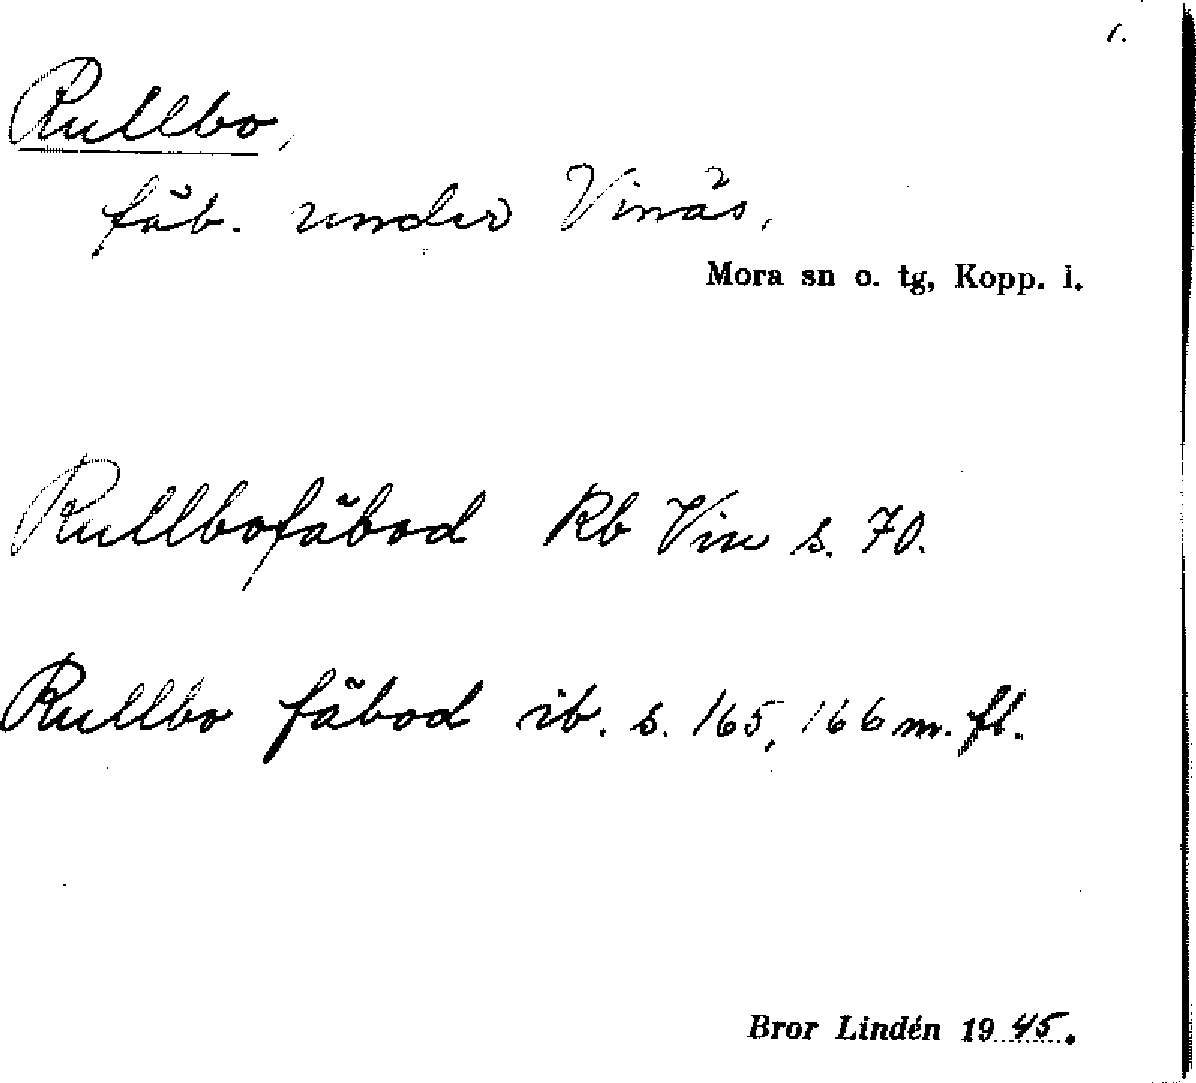 1.
Rullbo,
fäb. under Vinäs,
Mora sn o. tg, Kopp. l.
Rullbofäbod Rb Vin s. 70.
Rullbo fäbod ib. s. 165, 166 m. fl.
Bror Lindén 1945.